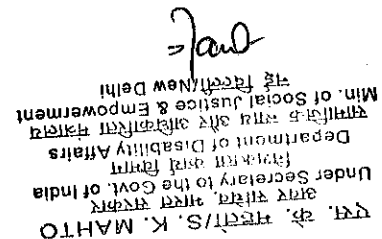 एस. के. महतो/S. K. MAHTO
अवर सचिव, भारत सरकार
Under Secretary to the Govt. of India
निःशक्तता कार्य विभाग
Department of Disability Affairs
सामाजिक न्याय और अधिकारिता मंत्रालय
Min. of Social Justice & Empowerment
नई दिल्ली/New Delhi